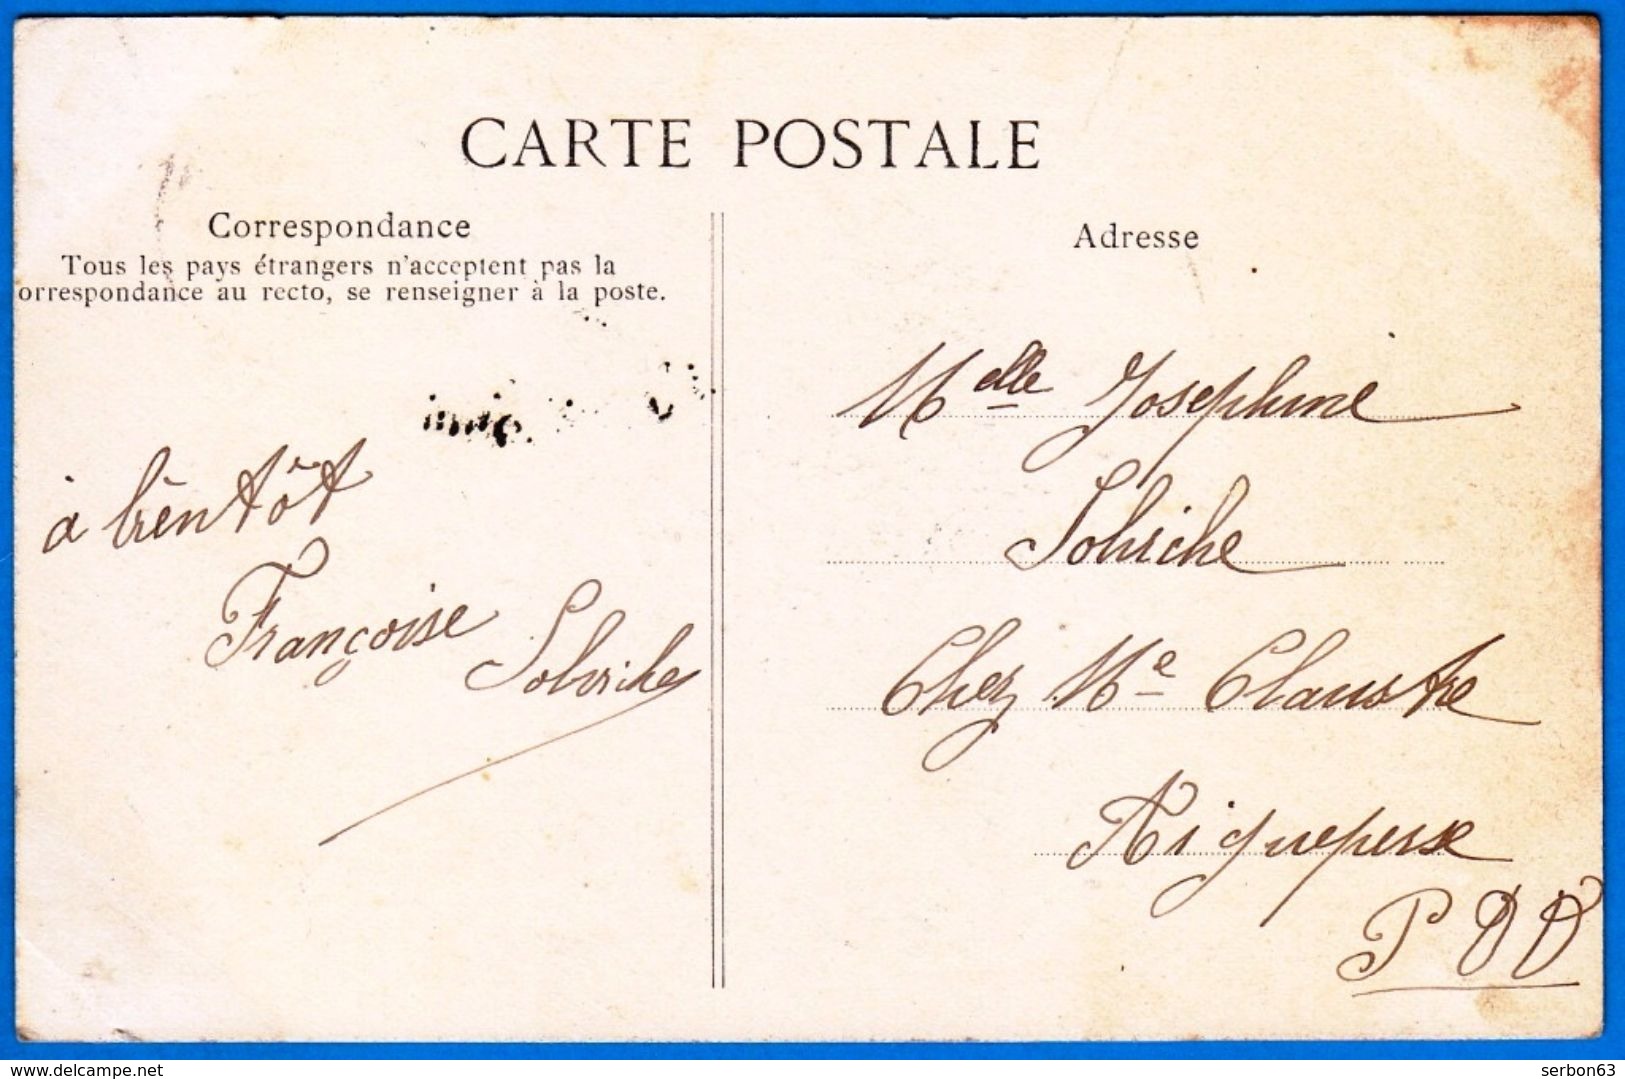 CARTE POSTALE
Correspondance
Tous les pays étrangers n'acceptent pas la
orrespondance au recto, se renseigner à la poste.
à bientôt
Françoise
Sobriche
Adresse
Melle Josephine
Sobriche
Chez Me Claustre
Aigueperse
P D D
www.delcampe.net
serbon63